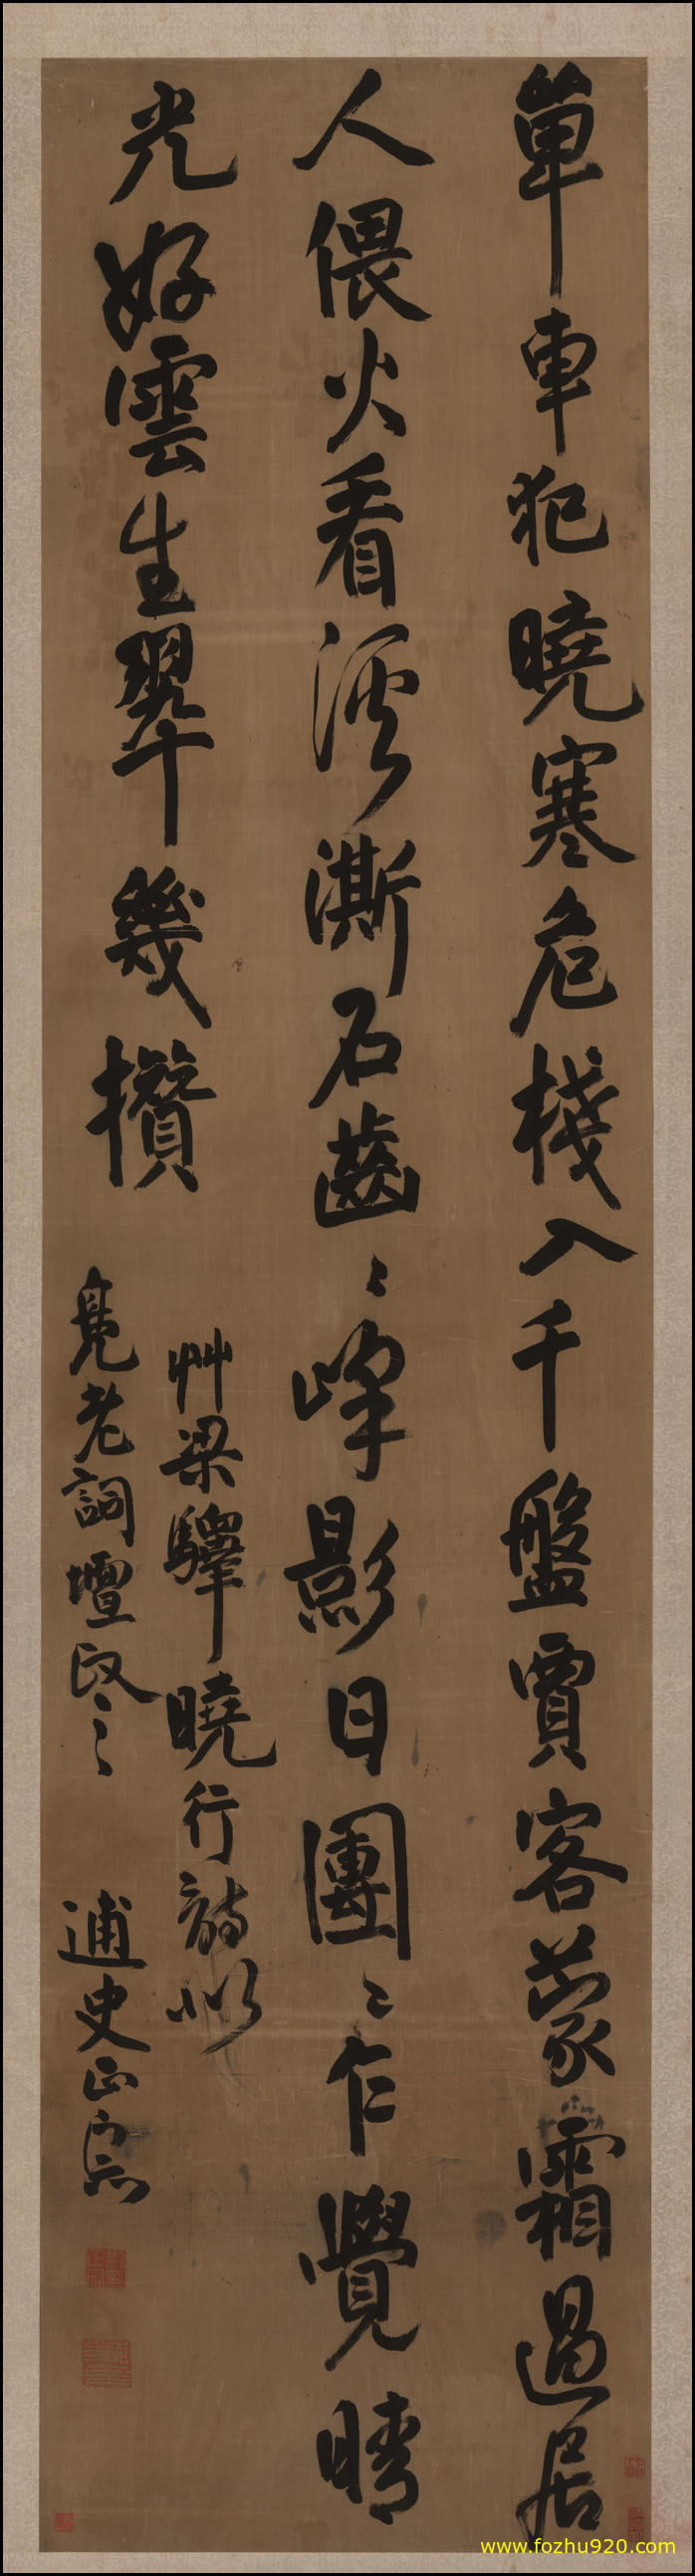 單車犯曉寒危棧入千盤賈客蒙霜過居
人偎火看溪澌石齒齒峰影日團團乍覺晴
光好雲生翠幾攢
草梁驛曉行詩似
老詞壇政之
逋史正宗
www.fozhu920.com